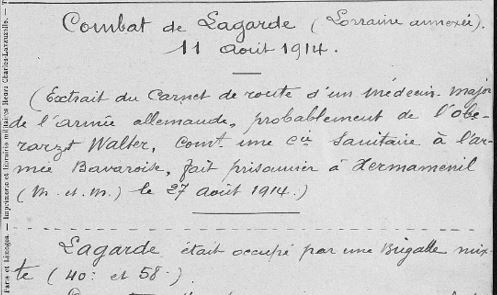 Combat de Lagarde (Lorraine annexée).
11 août 1914.
(Extrait du Carnet de route d'un médecin-major
de l'armée allemande, probablement de l'obe-
rarzt Walter, comt une Cie sanitaire à l'ar-
mée Bavaroise, fait prisonnier à Xermamenil
(M. et. M.) le 27 août 1914.)
Lagarde était occupé par une Brigade mix-
te (40: et 58:)
Paris et Limoges — Imprimerie et librairie militaires Henri Charles-Lavauzelle.